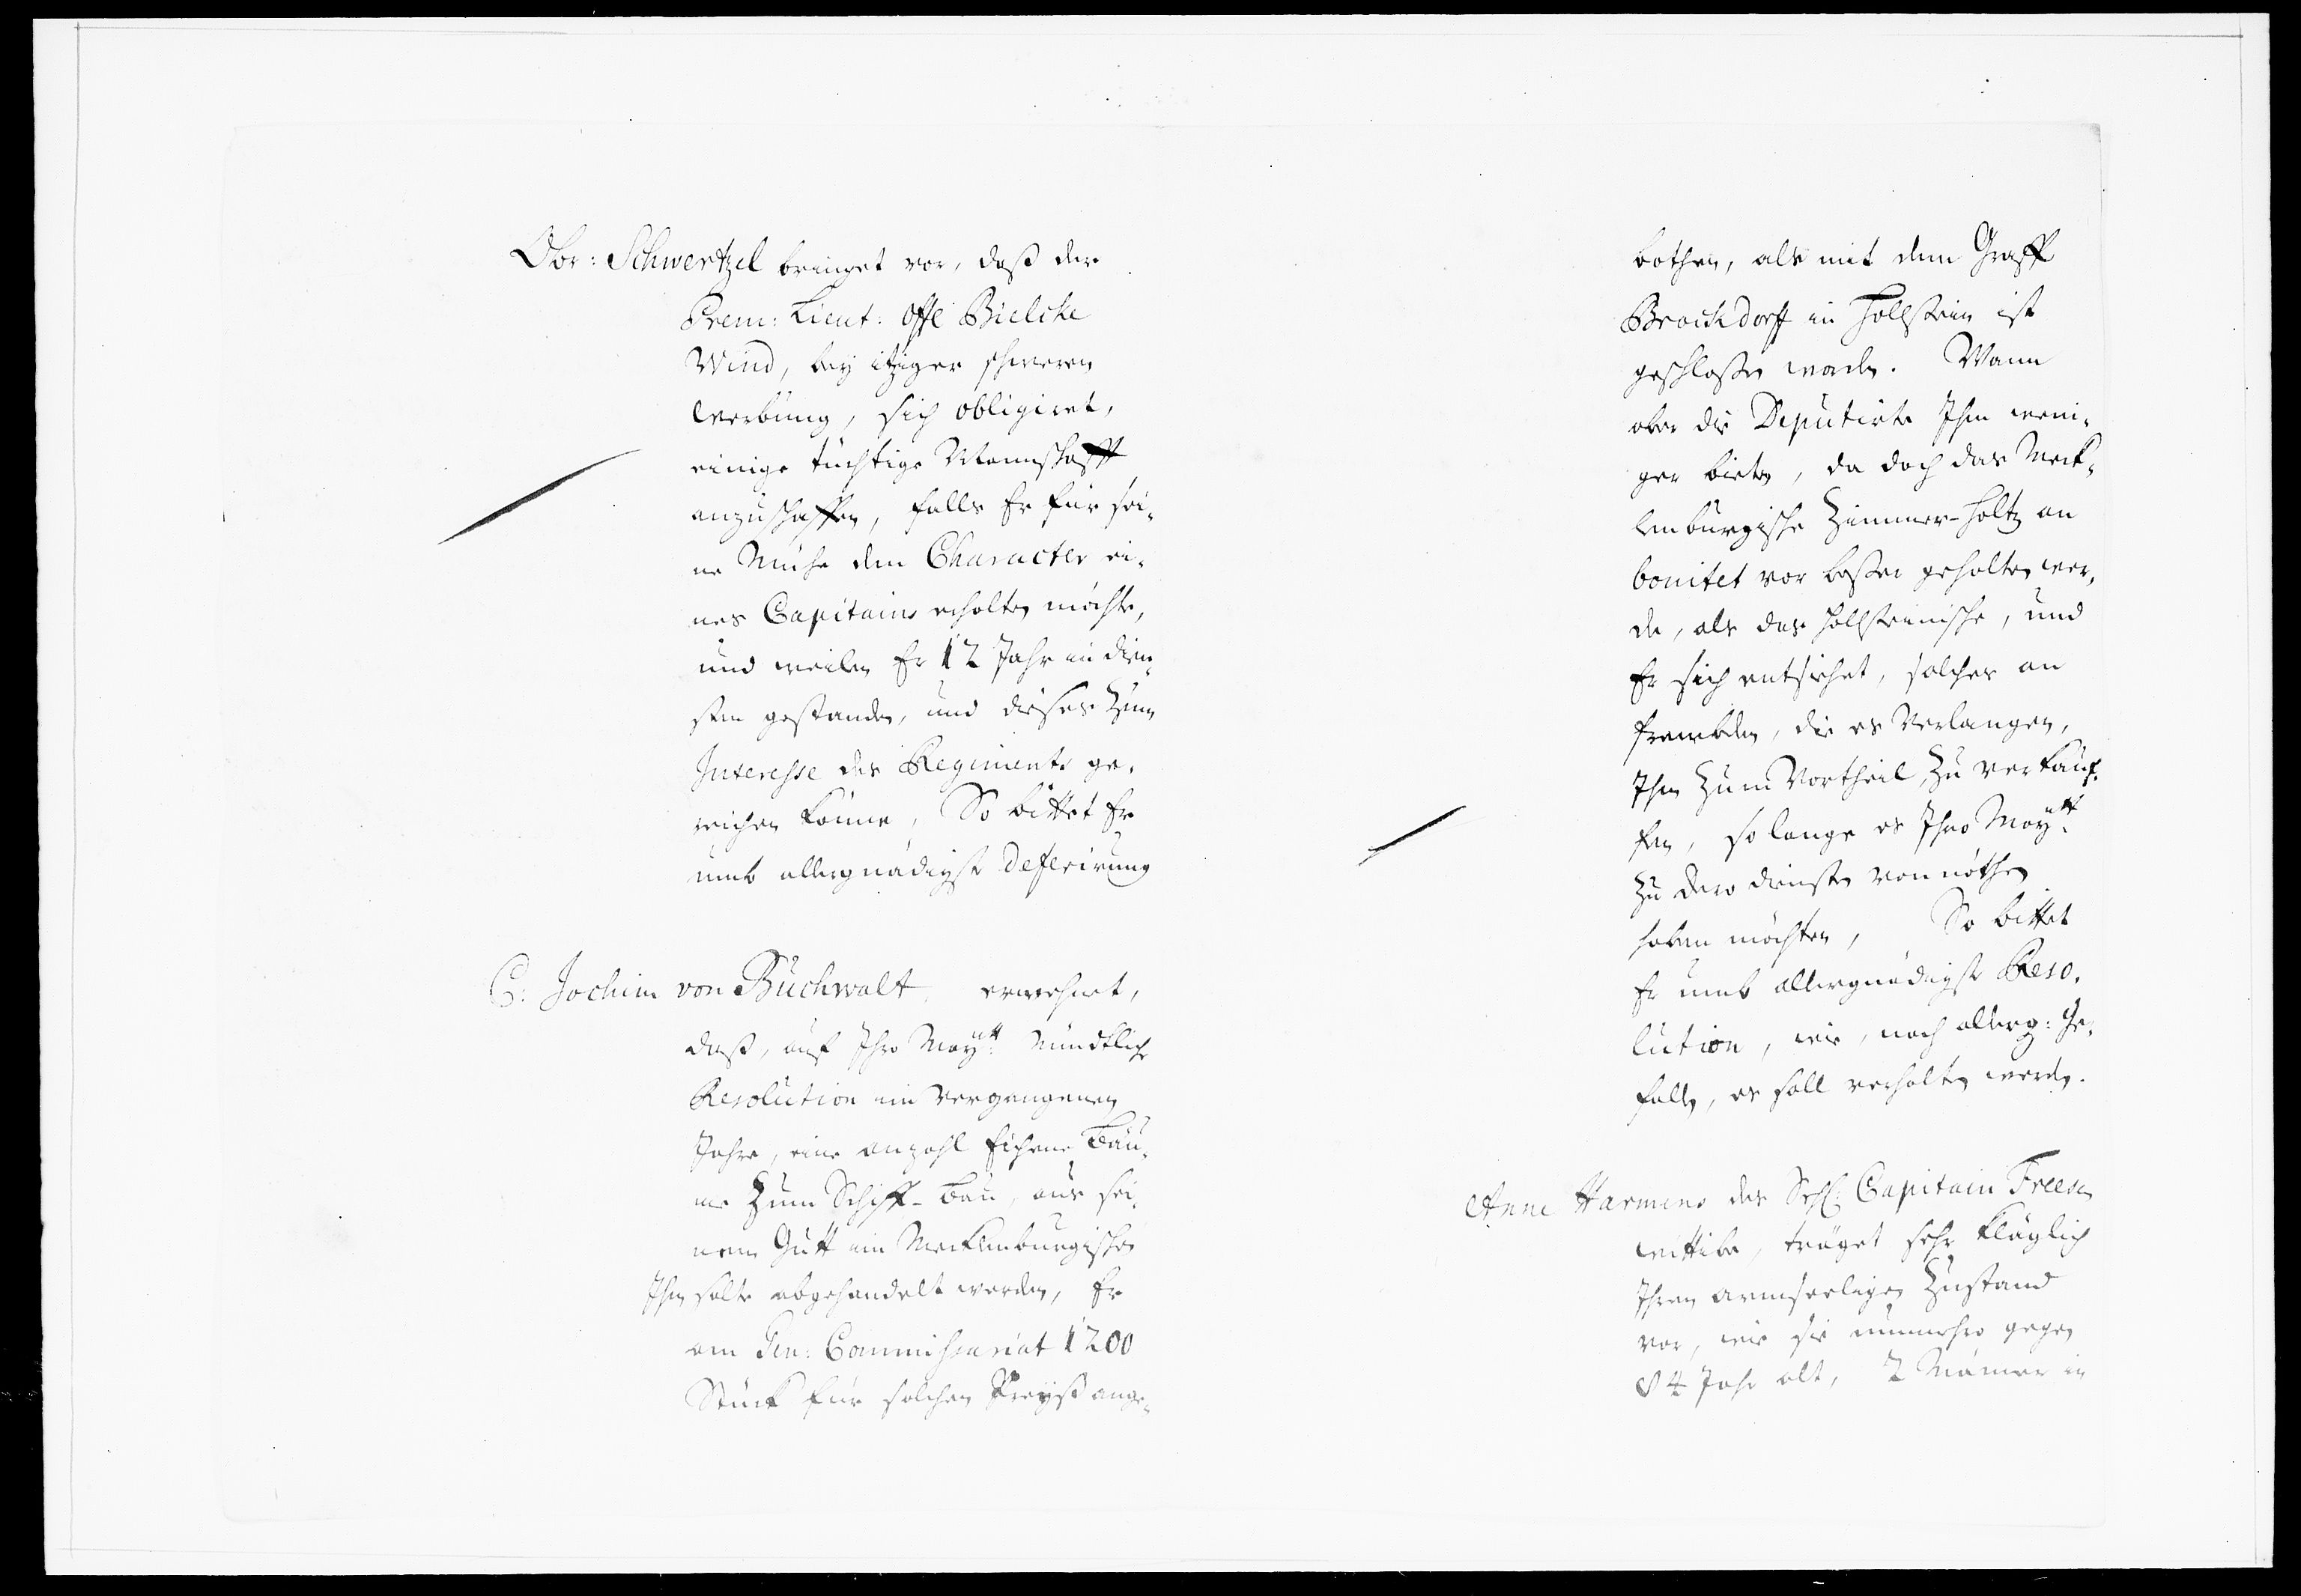 Obr: Schwertzel bringet vor, daß der
Prem: Lieut: Offe Bielcke
Wind, bey itziger schweren
Werbung, sich obligiret,
einige tüchtige Mannschafft
anzuschaffen, falls Er für sei-
ne Mühe den Character ei-
nes Capitains erhalten möchte,
und weilen Er 12 Jahr in dien-
sten gestanden, und dieses zum
Interesse des Regiments ge-
reichen könne, So bittet Er
umb allergnädigste Deferirung
C: Jochim von Buchwalt, erwehnet,
daß, auf Ihro Maytt: Mündtliche
Resolution im vergangenen
Jahre, eine anzahl Eichene Bäu-
me zum Schiff-Bau, aus sei-
nem Gutt im Mecklenburgischen
Ihm solte abgehandelt werden, Er
am Gen: Commissariat 1200
Stück für solchen Preyß ange-
bothen, als mit dem Graff
Brockdorff in Hollstein ist
geschloßen worden. Wann
aber die Deputirte Ihm weni-
ger bieten, da doch das Meck-
lenburgische Zimmer-Holtz an
bonitet vor beßer gehalten wer-
de, als das Hollsteinische, und
Er sich entsiehet, solches an
frembden, die es verlangen,
Ihm zum Vortheil, zu verkauf-
fen, so lange es Ihro Maytt:
zu dero diensten von nöthen
haben möchten, So bittet
Er umb allergnädigste Reso-
lution, wie, nach allerg: Ge-
fallen, es soll verhalten werden.
Anne Harmens des Sehl: Capitain Freesen
Wittibe, träget sehr kläglich
Ihren armseeligen Zustand
vor, wie sie nunmehro gegen
84 Jahr alt, 2 Männer in